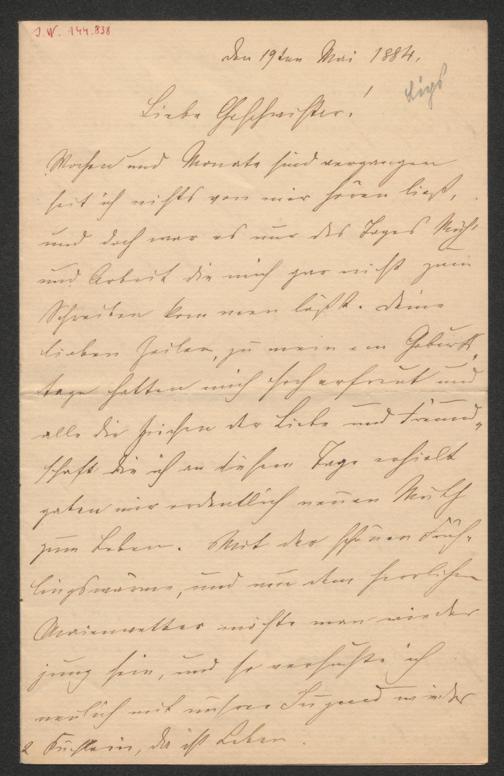 J.N. 144.838
den 19ten Mai 1884.
Liebe Geschwister!
Wochen und Monate sind vergangen
seit ich nichts von mir hören ließ,
und doch war es nur des Tages Müh
und Arbeit die mich gar nicht zum
Schreiben kommen läßt. Deine
lieben Zeilen, zu meinem Geburts
tage hatten mich hoch erfreut und
alle die Zeichen der Liebe und Freund-
schaft die ich an diesem Tage erhielt
gaben mir ordentlich neuen Muth
zum Leben. Mit der schönen Früh-
lingswärme, und nun dem herrlichen
Maienwetter möchte man wieder
jung sein, und so versuchte ich
neulich mit unsrer Jugend wieder
da ist Leben.